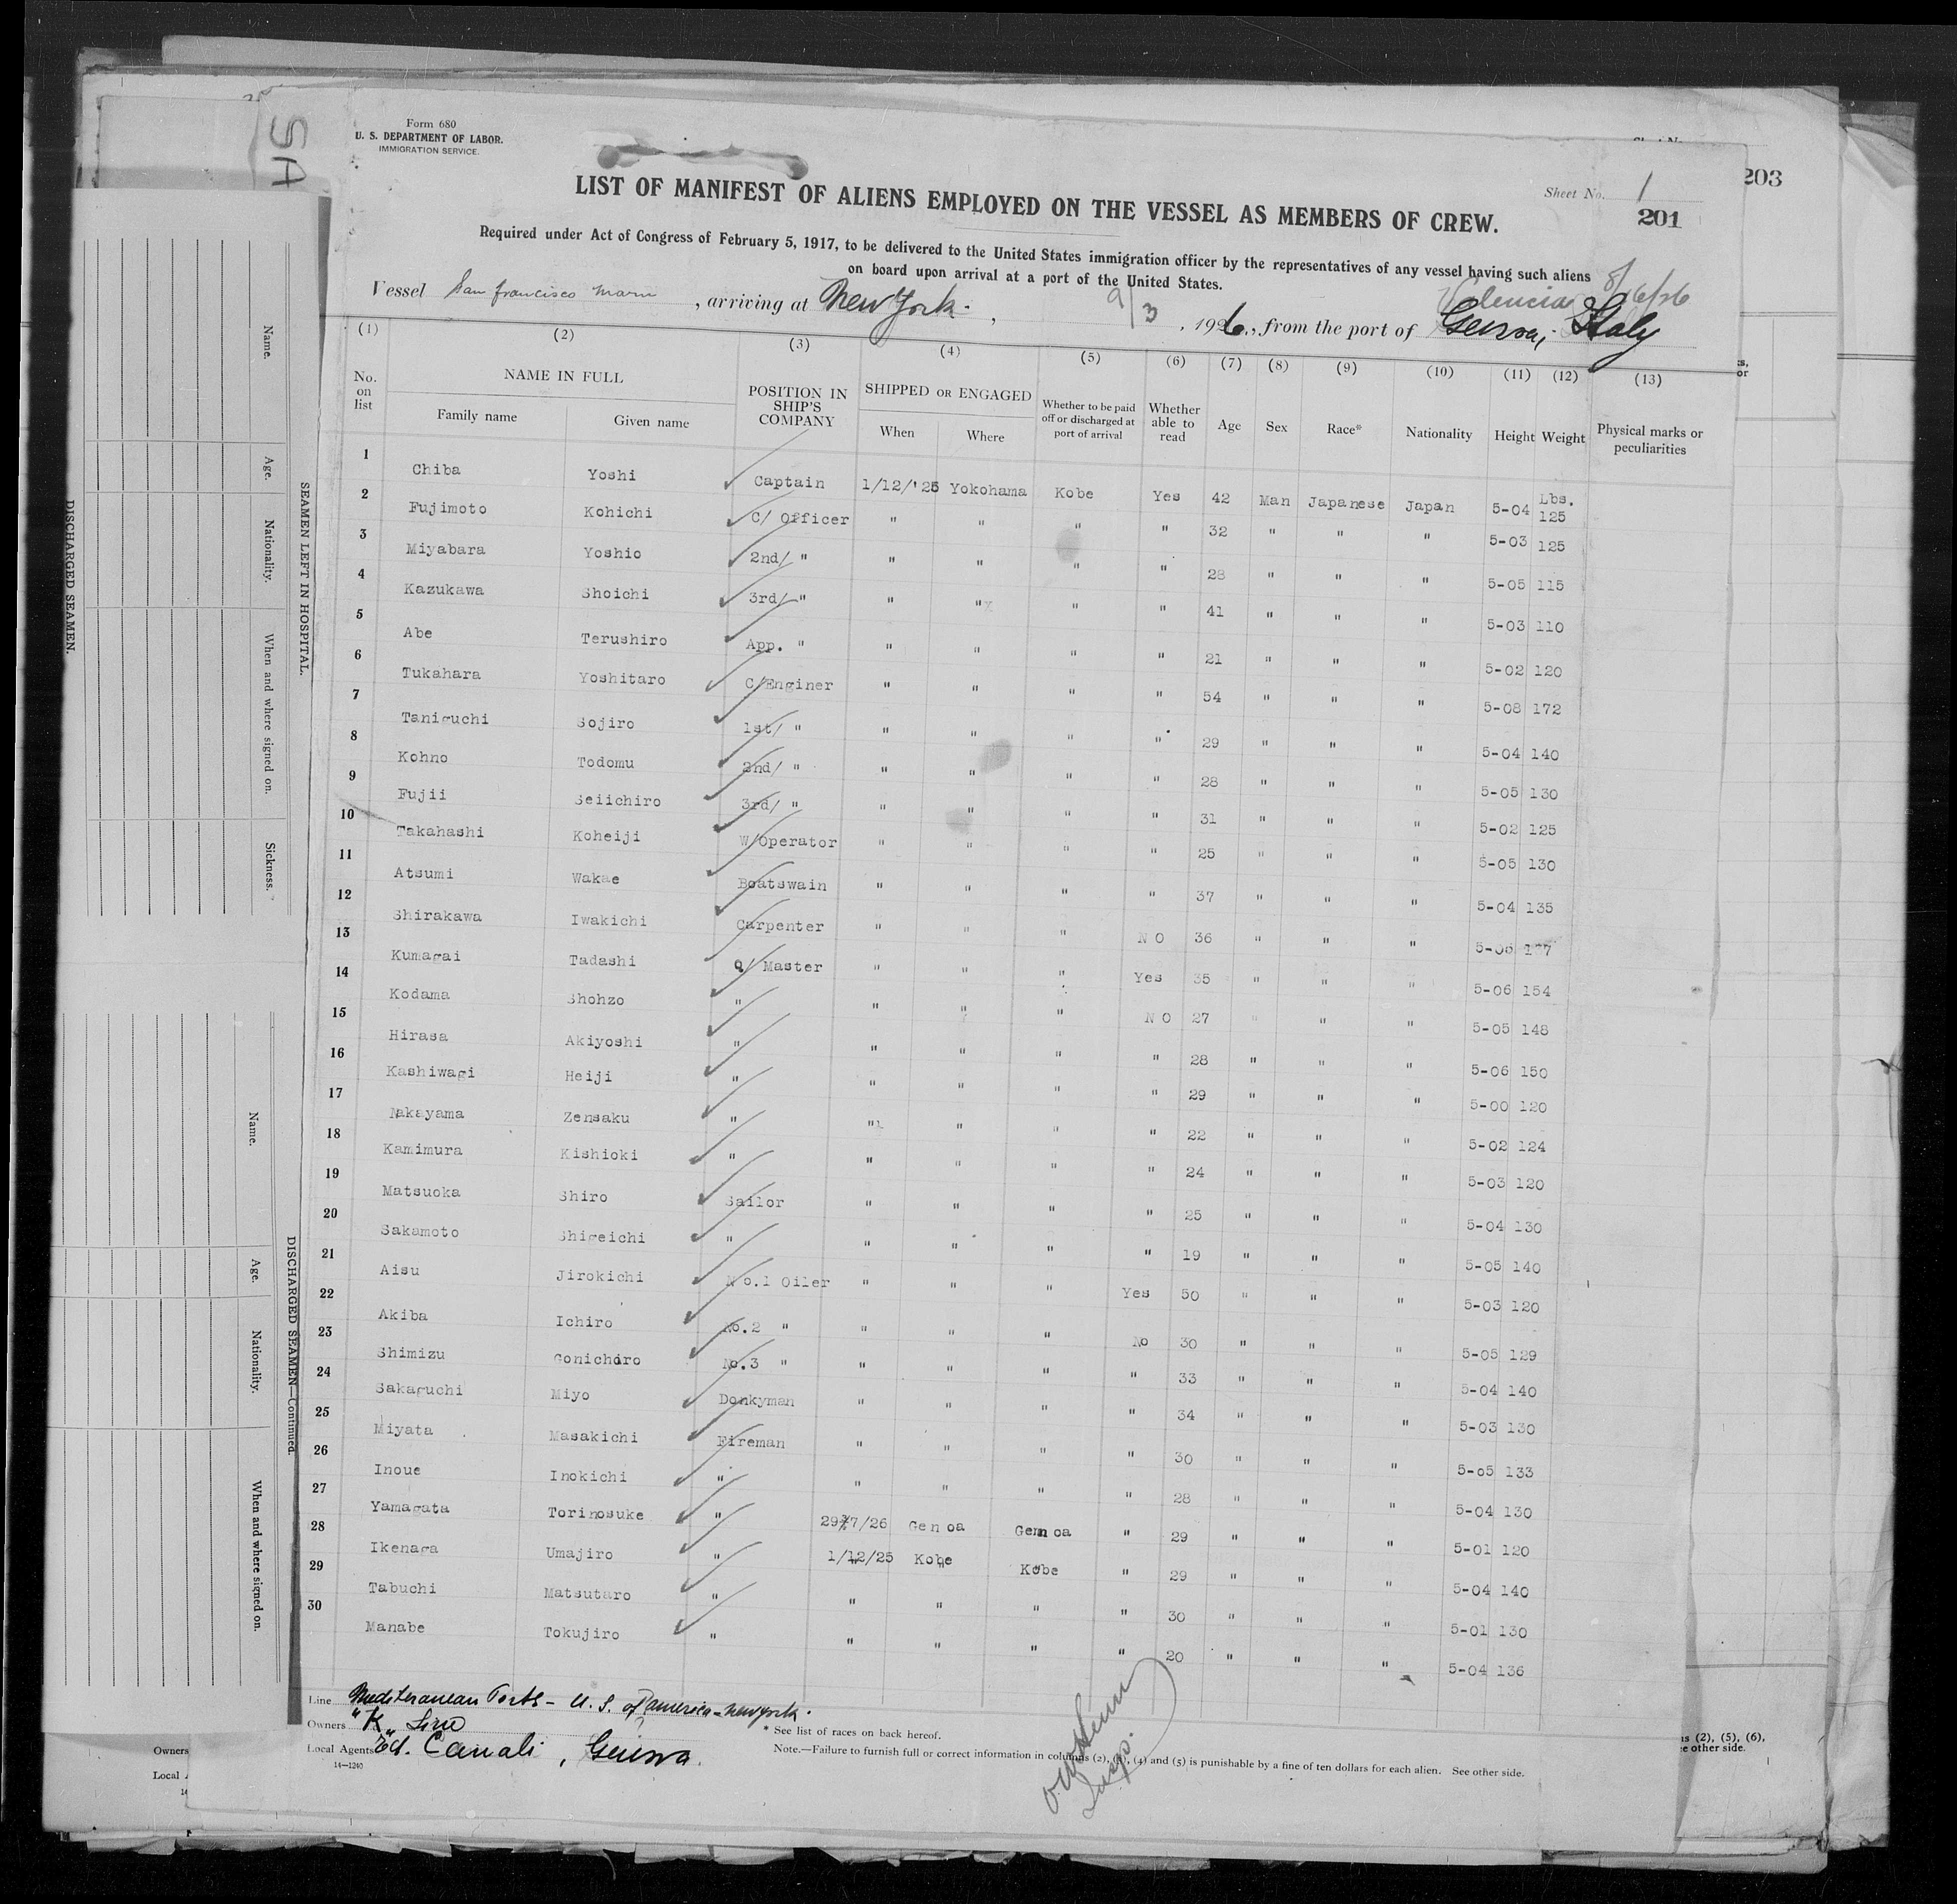 Form 680
U. S. DEPARTMENT OF LABOR.
IMMIGRATION SERVICE.
Sheet No. 1
203
201
LIST OF MANIFEST OF ALIENS EMPLOYED ON THE VESSEL AS MEMBERS OF CREW.
Required under Act of Congress of February 5, 1917, to be delivered to the United States immigration officer by the representatives of any vessel having such aliens
on board upon arrival at a port of the United States.
Valencia 8/16/26
Vessel San Francisco Maru, arriving at New York, 9/3, 1926, from the port of Genova, Italy
(1) (2) (3) (4) (5) (6) (7) (8) (9) (10) (11) (12) (13)
No. on list NAME IN FULL Family name Given name POSITION IN SHIP'S COMPANY SHIPPED OR ENGAGED When Where Whether to be paid off or discharged at port of arrival Whether able to read Age Sex Race* Nationality Height Weight Physical marks or peculiarities
1 Chiba Yoshi Captain 1/12/'25 Yokohama Kobe Yes 42 Man Japanese Japan 5-04 Lbs. 125
2 Fujimoto Kohichi C/ Officer " " " " 32 " " " 5-03 125
3 Miyabara Yoshio 2nd/ " " " " " 28 " " " 5-05 115
4 Kazukawa Shoichi 3rd/ " " " " " 41 " " " 5-03 110
5 Abe Terushiro App. " " " " " 21 " " " 5-02 120
6 Tukahara Yoshitaro C/Enginer " " " " 54 " " " 5-08 172
7 Taniguchi Sojiro 1st/ " " " " " 29 " " " 5-04 140
8 Kohno Todomu 2nd/ " " " " " 28 " " " 5-05 130
9 Fujii Seiichiro 3rd/ " " " " " 31 " " " 5-02 125
10 Takahashi Koheiji W/Operator " " " " 25 " " " 5-05 130
11 Atsumi Wakae Boatswain " " " " 37 " " " 5-04 135
12 Shirakawa Iwakichi Carpenter " " " NO 36 " " "
13 Kumagai Tadashi Q/ Master " " " Yes 35 " " " 5-06 154
14 Kodama Shohzo " " " " NO 27 " " " 5-05 148
15 Hirasa Akiyoshi " " " " " 28 " " " 5-06 150
16 Kashiwagi Heiji " " " " " 29 " " " 5-00 120
17 Nakayama Zensaku " " " " " 22 " " " 5-02 124
18 Kamimura Kishioki " " " " " 24 " " " 5-03 120
19 Matsuoka Shiro Sailor " " " " 25 " " " 5-04 130
20 Sakamoto Shigeichi " " " " " 19 " " " 5-05 140
21 Aisu Jirokichi No.1 Oiler " " " Yes 50 " " " 5-03 120
22 Akiba Ichiro No.2 " " " " No 30 " " " 5-05 129
23 Shimizu Gonichiro No.3 " " " " " 33 " " " 5-04 140
24 Sakaguchi Miyo Donkyman " " " " 34 " " " 5-03 130
25 Miyata Masakichi Fireman " " " " 30 " " " 5-05 133
26 Inoue Inokichi " " " " " 28 " " " 5-04 130
27 Yamagata Torinosuke " 29/7/26 Genoa Genoa " 29 " " " 5-01 120
28 Ikenaga Umajiro " 1/12/25 Kobe Kobe " 29 " " " 5-04 140
29 Tabuchi Matsutaro " " " " " 30 " " " 5-01 130
30 Manabe Tokujiro " " " " " 20 " " " 5-04 136
Line Mediteranean Ports - U. S. of America - New York.
Owners "K" Line
Local Agents Ed. Canali, Genova.
14—1240
* See list of races on back hereof.
Note.—Failure to furnish full or correct information in columns (2), (3), (4) and (5) is punishable by a fine of ten dollars for each alien. See other side.
Insp.
SEAMEN LEFT IN HOSPITAL.
Name. Age. Nationality. When and where signed on. Sickness.
DISCHARGED SEAMEN.
DISCHARGED SEAMEN—Continued.
Name. Age. Nationality. When and where signed on.
Owners
Local A
14
ns (2), (5), (6),
ee other side.
SA